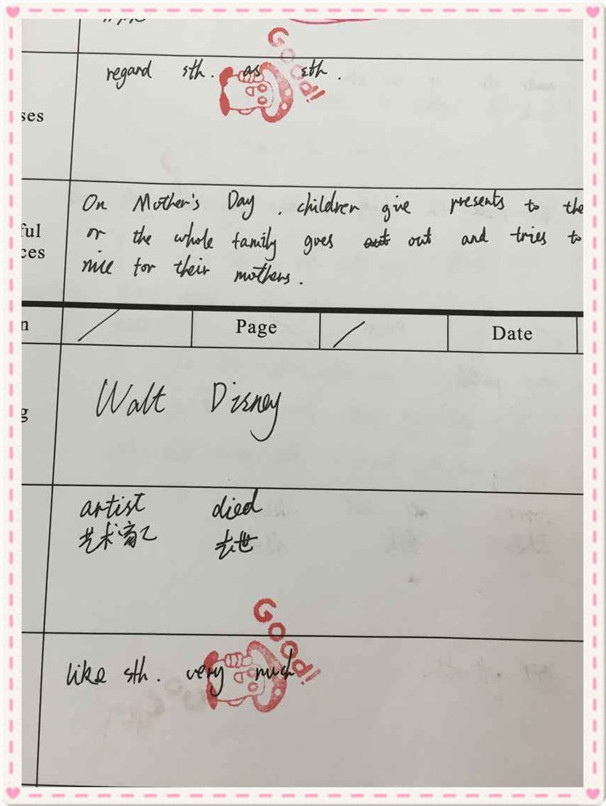 regard sth. as sth.
Good!
ses
On Mother's Day, children give presents to the
ful
or the whole family goes out and tries to
ces
nice for their mothers.
n
Page
Date
Walt Disney
g
artist died
艺术家 去世
Good!
like sth. very much